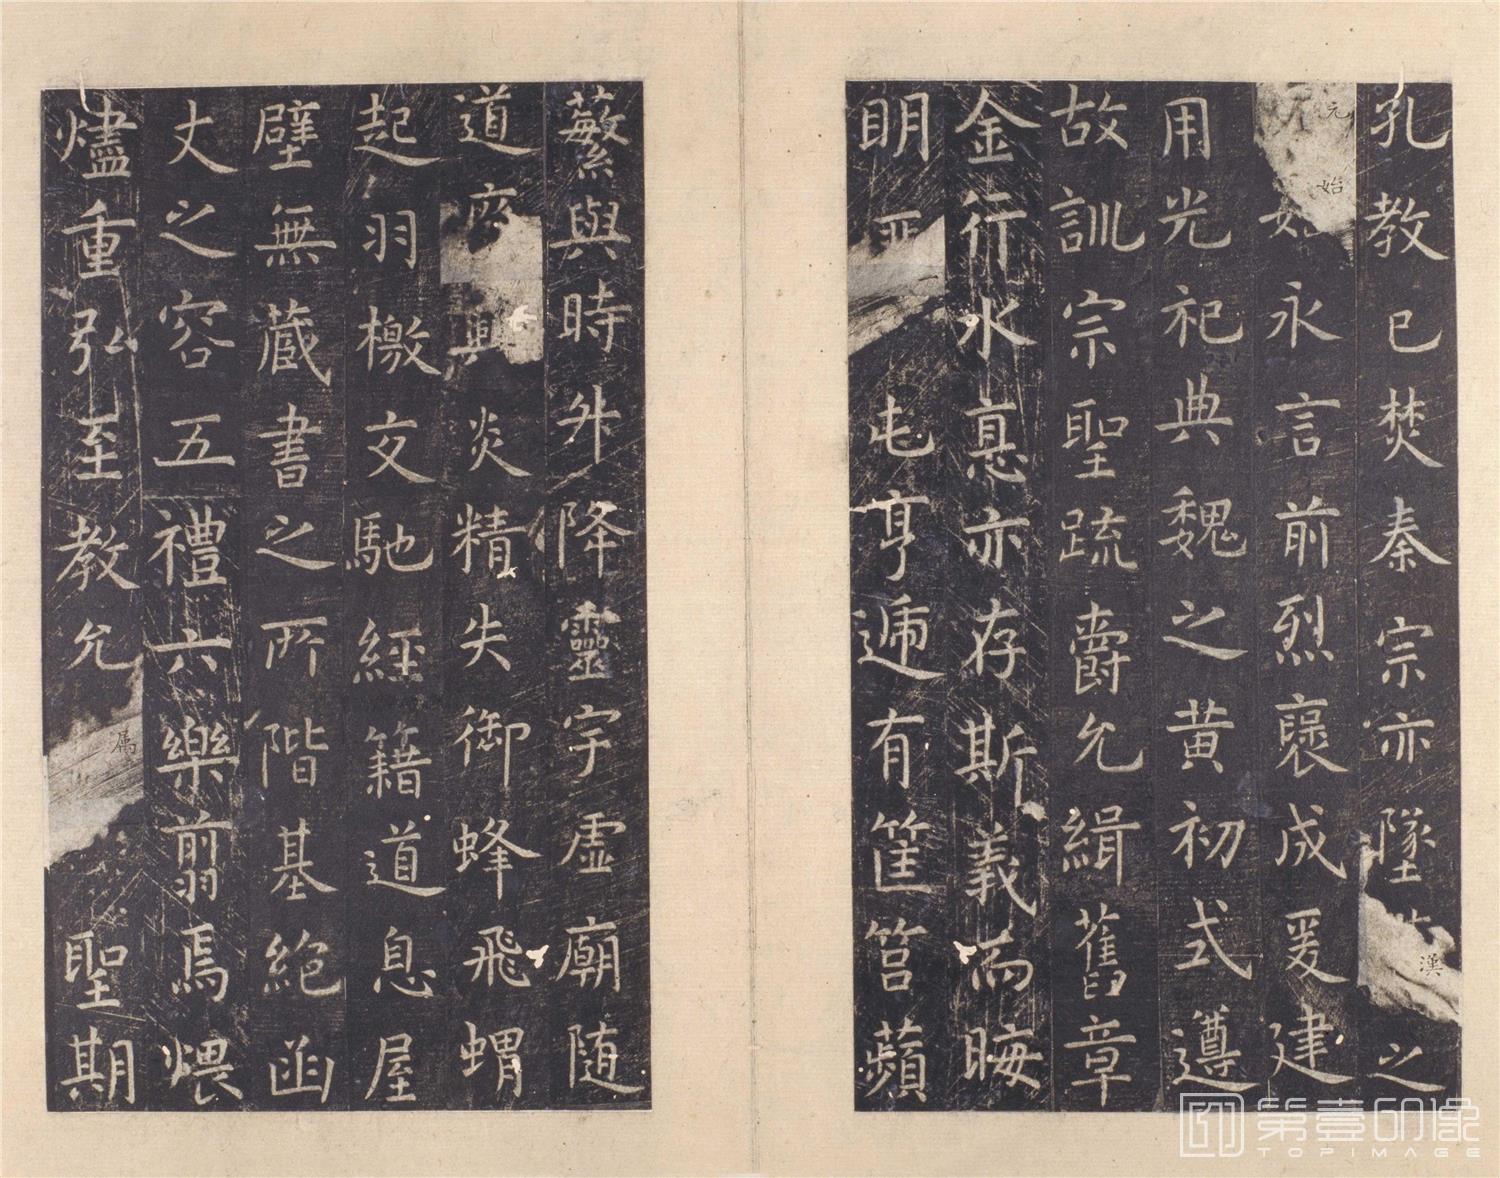 孔教已焚秦宗亦墜漢之
元始永言前烈襃成爰建
用光祀典魏之黄初式遵
故訓宗聖疏爵允緝舊章
金行水悳亦存斯義而晦
明匪一屯亨遞有筐筥蘋
蘩與時升降靈宇虛廟隨
道廢興炎精失御蜂飛蝟
起羽檄交馳經籍道息屋
壁無蔵書之所階基絶函
丈之容五禮六樂翦焉煨
燼重弘至教允属聖期
第壹印像
TOPIMAGE